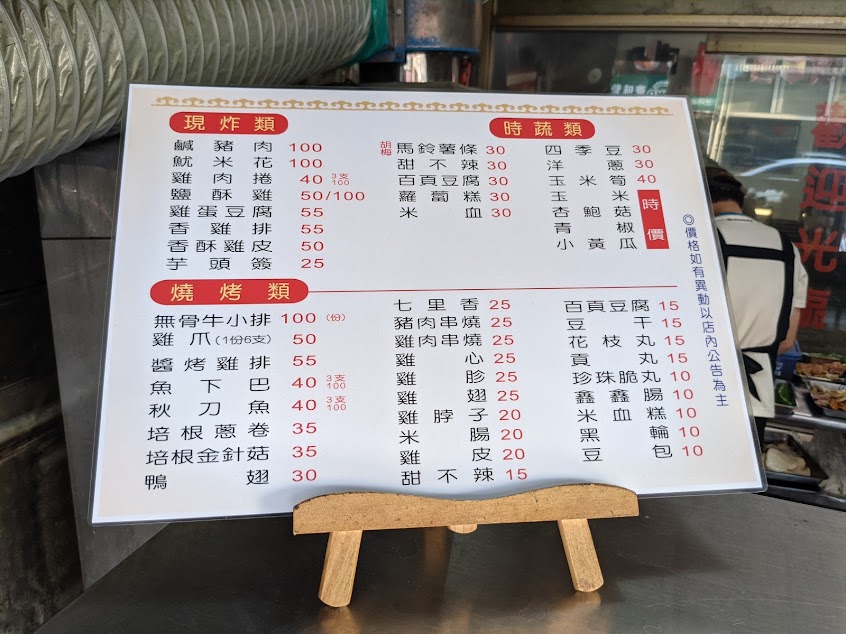 現炸類
鹹豬肉 100
魷米花 100
雞肉捲 40 3支100
鹽酥雞 50/100
雞蛋豆腐 55
香雞排 55
香酥雞皮 50
芋頭簽 25
時蔬類
胡梅 馬鈴薯條 30
甜不辣 30
百頁豆腐 30
蘿蔔糕 30
米血 30
四季豆 30
洋蔥 30
玉米筍 40
玉米
杏鮑菇
青椒
小黃瓜
時價
燒烤類
無骨牛小排 100 (份)
雞爪(1份6支) 50
醬烤雞排 55
魚下巴 40 3支100
秋刀魚 40 3支100
培根蔥卷 35
培根金針菇 35
鴨翅 30
七里香 25
豬肉串燒 25
雞肉串燒 25
雞心 25
雞胗 25
雞翅 25
雞脖子 20
米腸 20
雞皮 20
甜不辣 15
百頁豆腐 15
豆干 15
花枝丸 15
貢丸 15
珍珠脆丸 10
鑫鑫腸 10
米血糕 10
黑輪 10
豆包 10
◎價格如有異動以店內公告為主
歡迎光臨